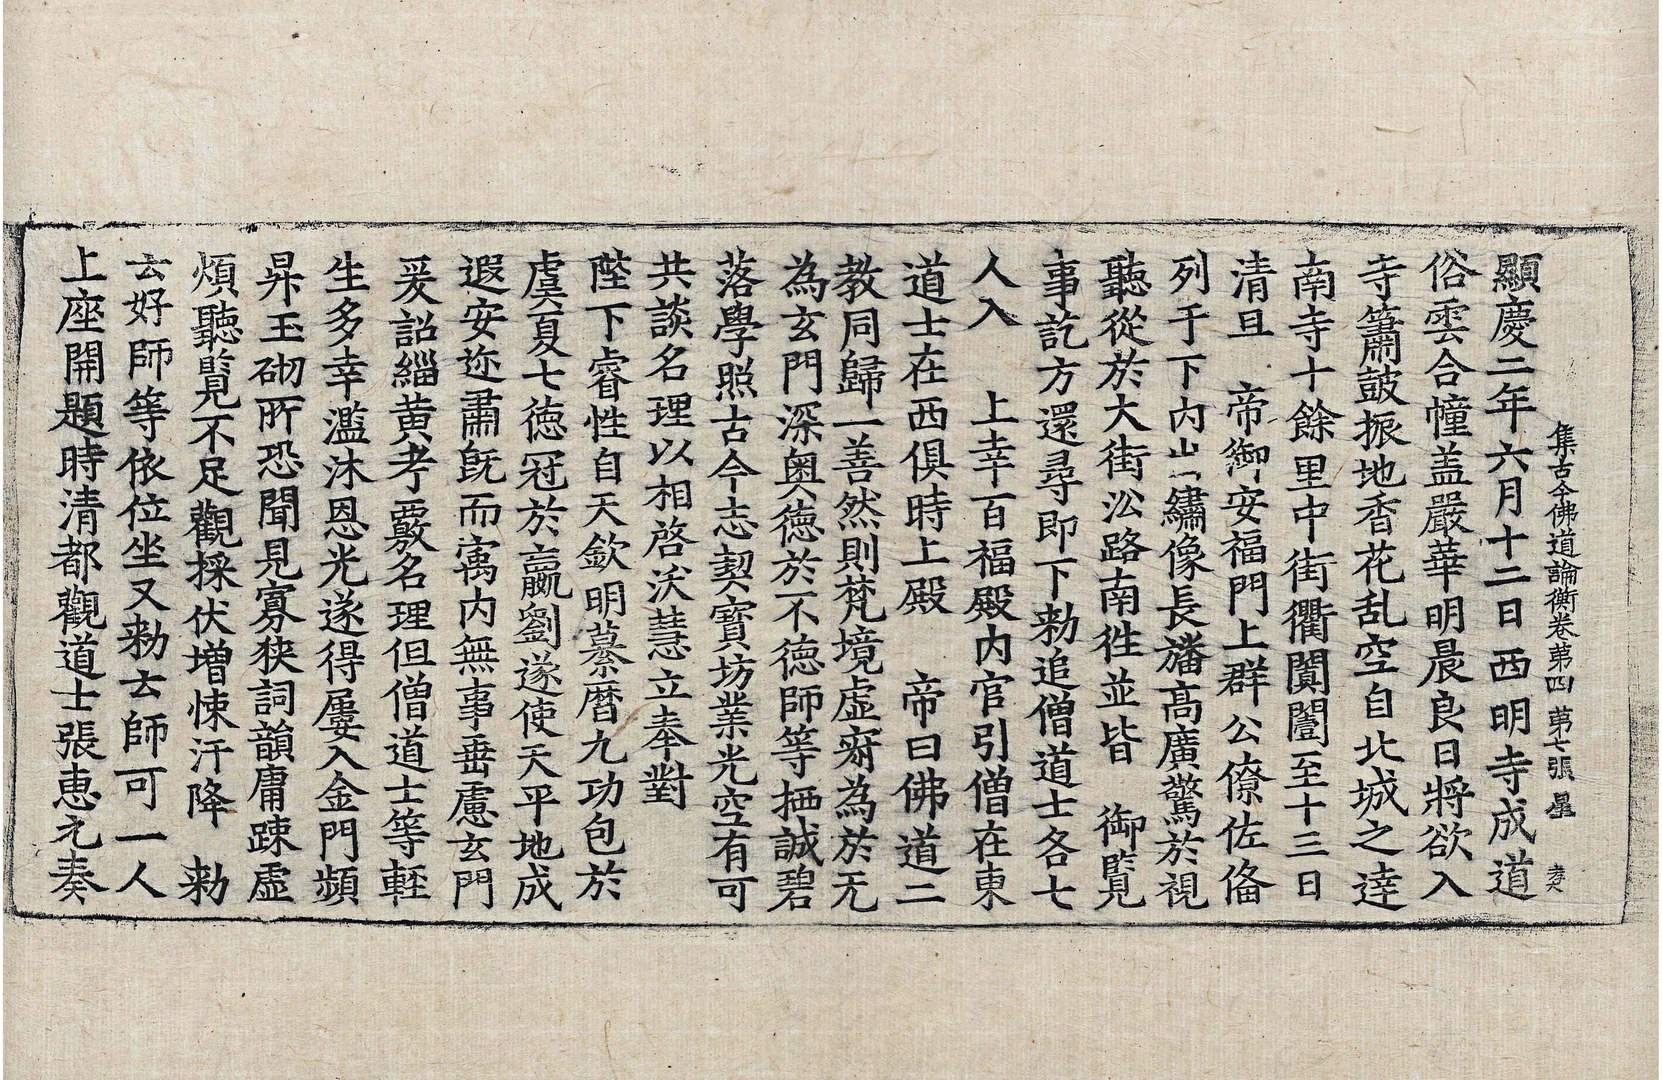 集古今佛道論衡卷苐四 苐七張 星
顯慶三年六月十二日西明寺成道
俗雲合幢盖嚴華明晨良日將欲入
寺簫皷振地香花乱空自北城之達
南寺十餘里中街衢闐闛至十三日
清旦 帝御安福門上群公僚佐俻
列于下內出繡像長旛高廣驚於視
聽從於大街沿路南徃並皆 御覧
事訖方還尋即下勑追僧道士各七
人入 上幸百福殿內官引僧在東
道士在西俱時上殿 帝曰佛道二
教同歸一善然則梵境虛宗為於无
為玄門深奥德於不德師等栖誠碧
落學照古今志契寶坊業光空有可
共談名理以相啓沃慧立奉對
陛下睿性自天欽明纂曆九功包於
虞夏七德冠於嬴劉遂使天平地成
遐安迩肅旣而寓內無事垂慮玄門
爰詔緇黄考覈名理但僧道士等輕
生多幸濫沐恩光遂得屢入金門頻
昇玉砌所恐聞見寡狹詞韻庸踈虛
煩聽覧不足觀採伏增悚汗降 勑
云好師等依位坐又勑云師可一人
上座開題時清都觀道士張惠元奏